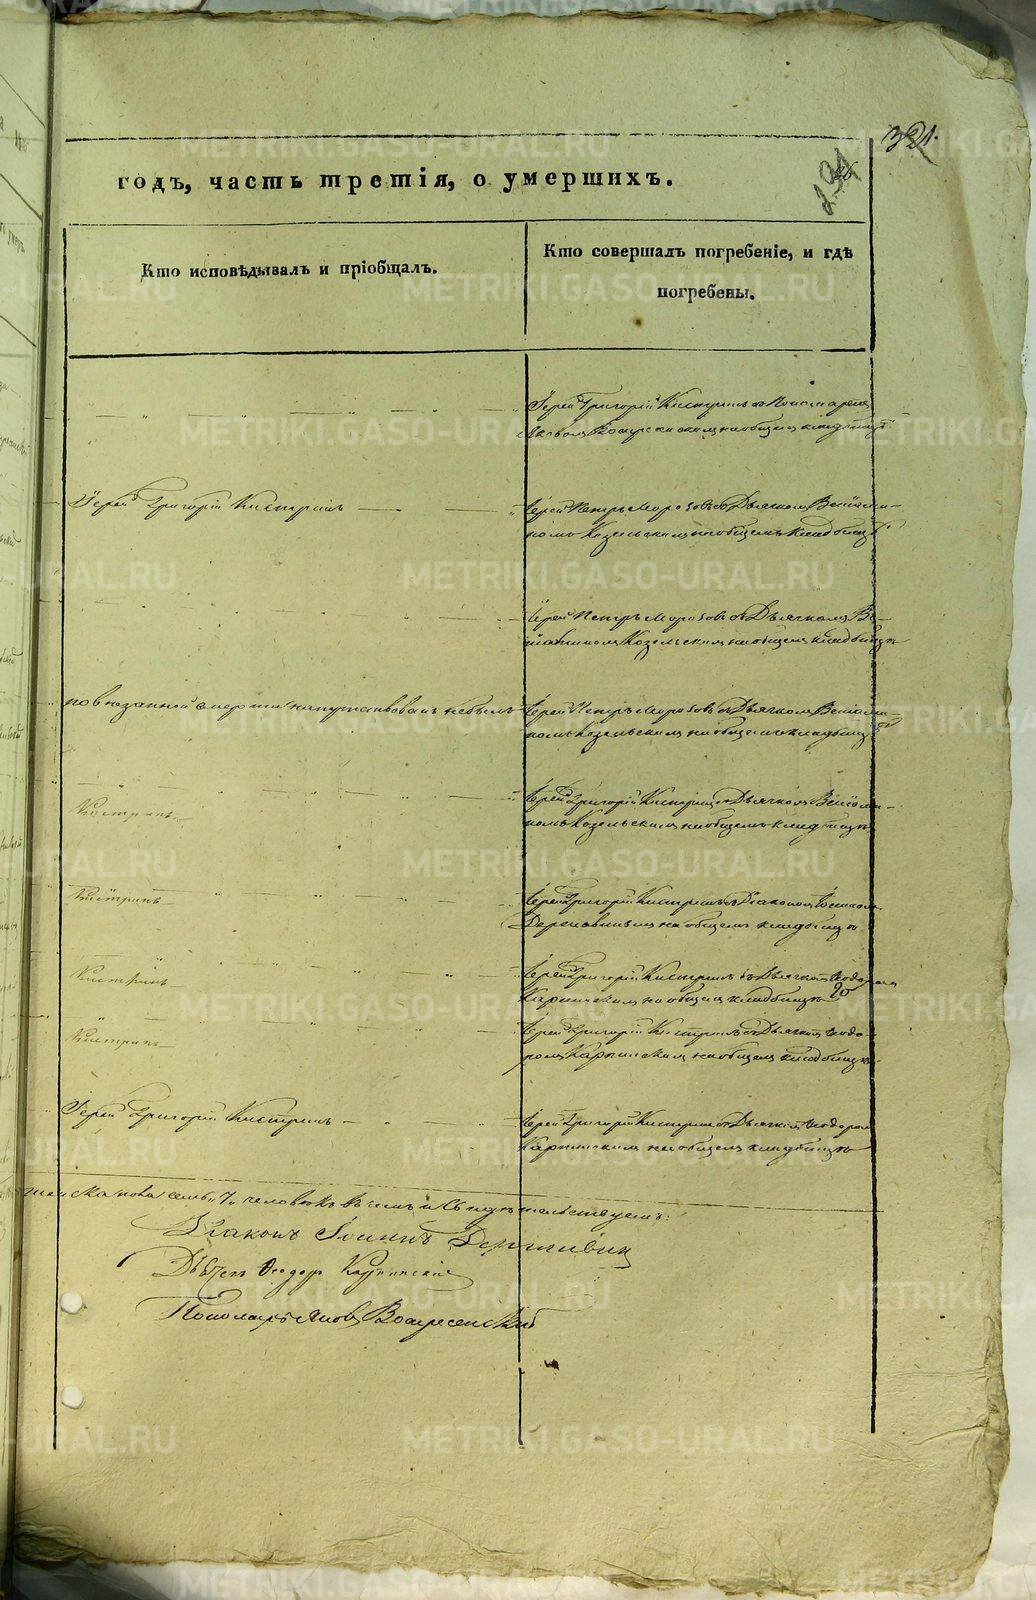 321.
годъ, часть третія, о умершихъ.
Кто исповѣдывалъ и пріобщалъ.
Кто совершалъ погребеніе, и гдѣ
погребены.
Іерей Григорій Кистринъ съ Пономаремъ
Яковомъ Воскресенскимъ на общемъ кладбищѣ
Іерей Григорій Кистринъ
Іерей Петръ Морозовъ съ Дьячкомъ Веніами-
номъ Козельскимъ на общемъ кладбищѣ
Іерей Петръ Морозовъ съ Дьячкомъ Ве-
ніаминомъ Козельскимъ на общемъ кладбищѣ
по внезапной смерти напутствованъ небылъ
Іерей Петръ Морозовъ съ Дьячкомъ Веніами-
номъ Козельскимъ на общемъ кладбищѣ
Кистринъ
Іерей Григорій Кистринъ съ Дьячкомъ Веніами-
номъ Козельскимъ на общемъ кладбищѣ
Кистринъ
Іерей Григорій Кистринъ съ Діакономъ Іоанномъ
на общемъ кладбищѣ
Кистринъ
Іерей Григорій Кистринъ съ Дьячкомъ Ѳеодоромъ
Карпинскимъ на общемъ кладбищѣ
Кистринъ
Іерей Григорій Кистринъ съ Дьячкомъ Ѳеодо-
ромъ Карпинскимъ на общемъ кладбищѣ
Іерей Григорій Кистринъ
Іерей Григорій Кистринъ съ Дьячкомъ Ѳеодоромъ
Карпинскимъ на общемъ кладбищѣ
семь 7 человѣкъ въ чемъ и свидѣтельствуемъ:
Діаконъ Іоаннъ
Дьячекъ Ѳеодоръ Карпинскій
Пономарь Яковъ Воскресенскій
METRIKI.GASO-URAL.RU